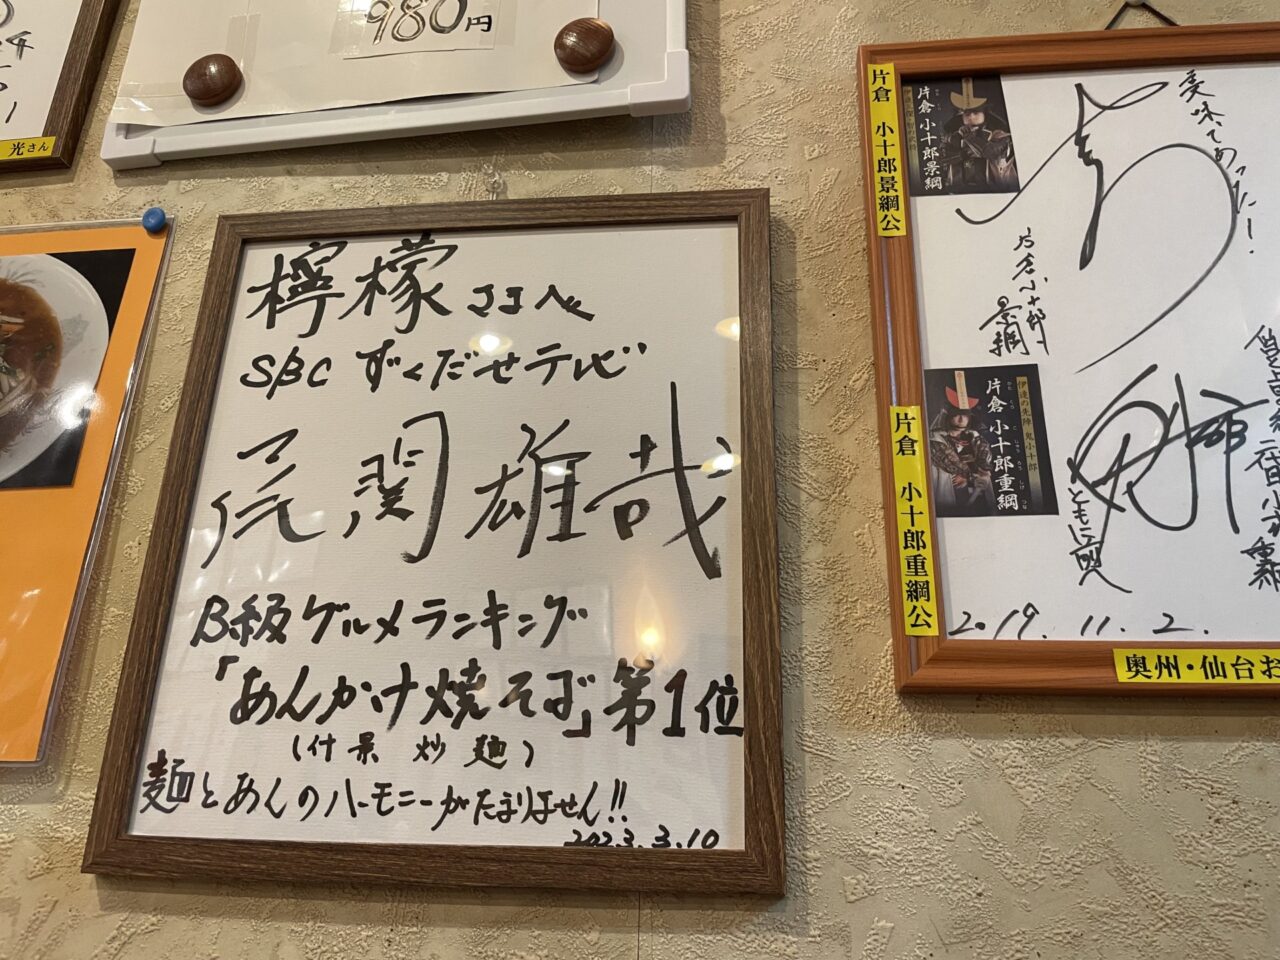 980円
光さん
檸檬さんへ
SBC ずくだせテレビ
尾関雄哉
B級グルメランキング
「あんかけ焼そば」第1位
(什景炒麺)
麺とあんのハーモニーがたまりません!!
2023.3.10
片倉 小十郎景綱公
片倉 小十郎景綱
美味であった!
片倉小十郎
景綱
片倉 小十郎重綱公
伊達の先陣 鬼小十郎
片倉 小十郎重綱
2019.11.2.
奥州・仙台お